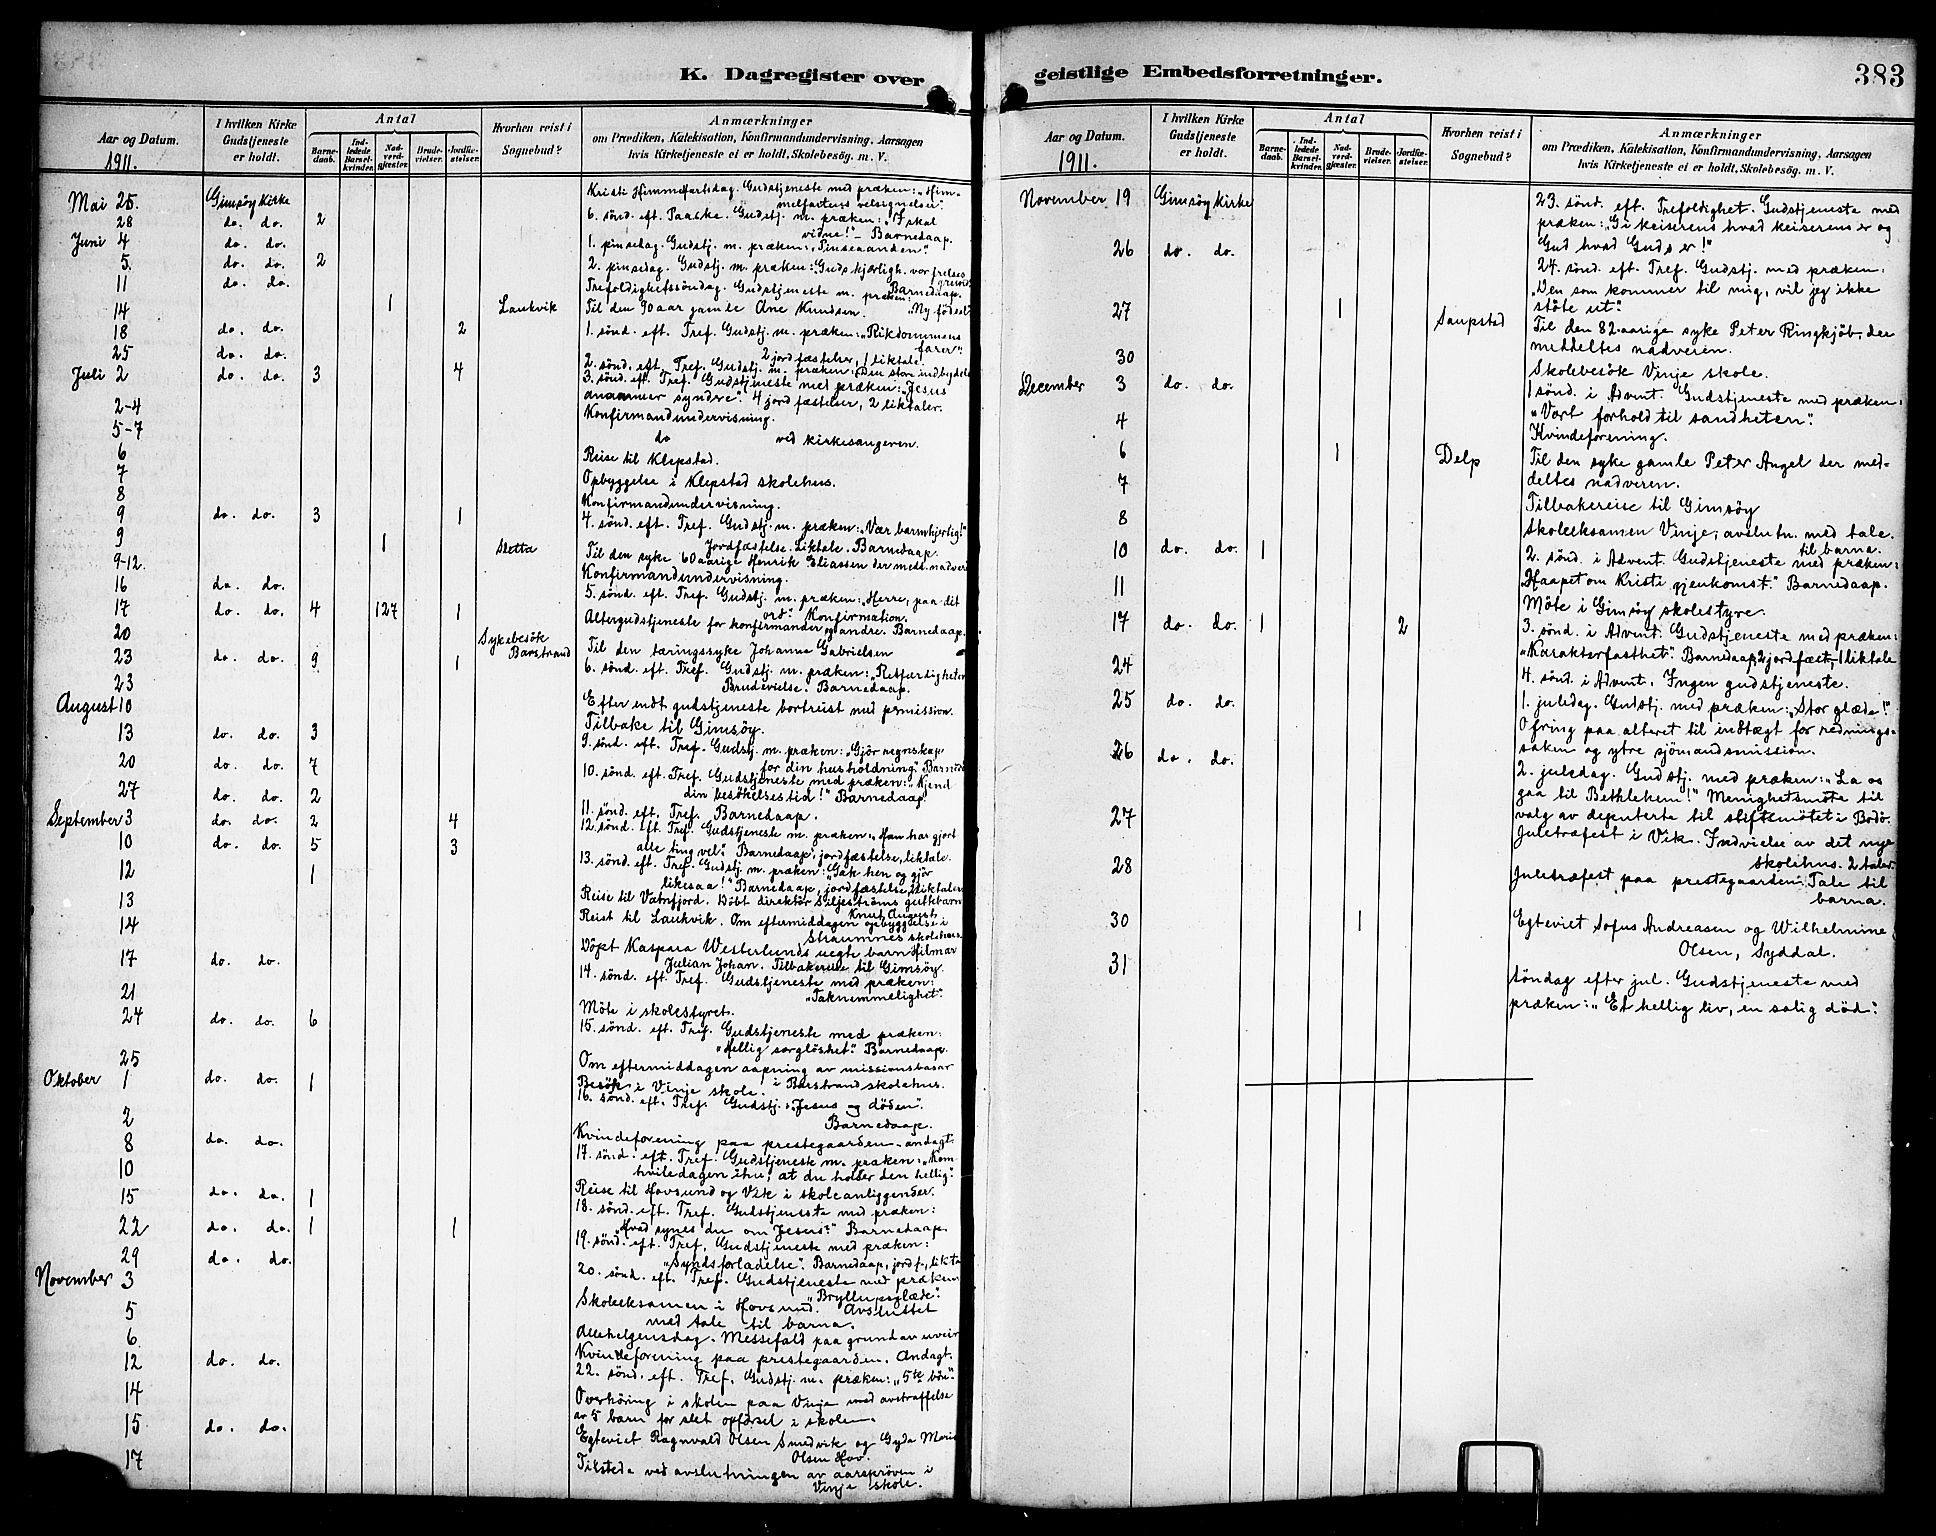 K. Dagregister over
Aar og Datum.
1911.
I hvilken Kirke Gudstjeneste er holdt.
Antal
Barnedaab.
Indledede Barselkvinder.
Nadverdgjester.
Brudevielser.
Jordfæstelser.
Hvorhen reist i Sognebud?
Anmærkninger
om Prædiken, Katekisation, Konfirmandundervisning, Aarsagen
hvis Kirketjeneste ei er holdt, Skolebesøg. m. V.
Mai 25. Gimsöy Kirke Kristi Himmelfartsdag. Gudstjeneste med præken: „Him-
melfartens velsignelser."
28 do. do. 2 6. sönd. eft. Paaske. Gudstj. m. præken: „I skal
vidne!" – Barnedaap.
Juni 4 do. do. 1. pinsedag. Gudstj. m. præken: „Pinseaanden".
5. do. do. 2 2. pinsedag. Gudstj. m. præken: Guds kjærligh. vor frelses
grund. Barnedaap.
11 do. do. Trefoldighetssöndag. Gudstjeneste m. præken:
„Ny födsel"
14 1 Laukvik Til den 90 aar gamle Ane Knudsen.
18 do. do. 2 1. sönd. eft. Tref. Gudstj. m. præken: „Rikdommens
farer".
2 jordfæstelser, 1 liktale.
25 do. do. 2. sönd. eft. Tref. Gudstj. m. præken: Den store indbydelse
Juli 2 do. do. 3 4 3. sönd. eft. Tref. Gudstjeneste med præken: „Jesus
anammer syndre". 4 jordfæstelser, 2 liktaler.
2-4 Konfirmandundervisning.
5-7 do ved kirkesangeren.
6 Reise til Klepstad.
7 Opbyggelse i Klepstad skolehus.
8 Konfirmandundervisning.
9 do. do. 3 1 4. sönd. eft. Tref. Gudstj. m. præken: „Vær barmhjertig!"
Jordfæstelse. Liktale. Barnedaap.
9 1 Sletta Til den syke 60 aarige Henrik Eliassen der medd. nadver
9-12. Konfirmandundervisning.
16 do. do. 5. sönd. eft. Tref. Gudstj. m. præken: „Herre, paa dit
ord". Konfirmation.
17 do. do. 4 127 1 Altergudstjeneste for konfirmander og andre. Barnedaap.
20 Sykebesök Barstrand Til den tæringssyke Johanna Gabrielsen
23 do. do. 9 1 6. sönd. eft. Tref. Gudstj. m. præken: „Retfærdigheten
Brudevielse. Barnedaap.
23 Efter endt gudstjeneste bortreist med permission.
August 10 Tilbake til Gimsöy.
13 do. do. 3 9. sönd. eft. Tref. Gudstj. m. præken: „Gjör regnskap
for din husholdning". Barned.
20 do. do. 7 10. sönd. eft. Tref. Gudstjeneste med præken: „Kjend
din besökelsestid!" Barnedaap.
27 do. do. 2 11. sönd. eft. Tref. Barnedaap.
September 3 do. do. 2 4 12. sönd. eft. Tref. Gudstjeneste m. præken: „Han har gjort
alle ting vel". Barnedaap, jordfæstelse, liktale.
10 do. do. 5 3 13. sönd. eft. Tref. Gudstj. m. præken: „Gak hen og gjör
likesaa!" Barnedaap, jordfæstelse, liktaler
12 1 Reise til Vatnfjord. Döbt direktör Siljeströms guttebarn
Knut August
13 Reist til Laukvik. Om eftermiddagen opbyggelse i
Straumnes skolehus.
14 Döpt Kaspara Westerlunds uegte barn Hilmar
Julian Johan. Tilbakereise til Gimsöy.
17 do. do. 14. sönd. eft. Tref. Gudstjeneste med præken:
„Taknemmelighet".
21 Möte i skolestyret.
24 do. do. 6 15. sönd. eft. Tref. Gudstjeneste med præken:
„Hellig sorglöshet". Barnedaap.
Om eftermiddagen aapning av missionsbasar
i Barstrand skolehus.
25 Besök i Vinje skole.
Oktober 1 do. do. 1 16. sönd. eft. Tref. Gudstj.: „Jesus og döden".
Barnedaap.
2 Kvindeforening paa prestegaarden – andagt.
8 do. do. 17. sönd. eft. Tref. Gudstjeneste m. præken: „Kom
hviledagen ihu, at du holder den hellig".
10 Reise til Hovsund og Vik i skoleanliggender.
15 do. do. 1 18. sönd. eft. Tref. Gudstjeneste med præken:
„Hvad synes du om Jesus?" Barnedaap.
22 do. do. 1 1 19. sönd. eft. Tref. Gudstjeneste med præken:
„Syndsforladelse". Barnedaap, jordf., likta
29 do. do. 20. sönd. eft. Tref. Gudstjeneste med præken
„Bryllupsglæde".
November 3 Skoleeksamen i Hovsund. Avsluttet
med tale til barna.
5 Allehelgensdag. Messefald paa grund av uveir
6 Kvindeforening paa prestegaarden. Andagt.
12 do. do. 22. sönd. eft. Tref. Gudstj. m. præken: „5te bön".
14 Overhöring i skolen paa Vinje med avstraffelse
av 5 barn for slet opförsel i skolen.
15 do. do. Egteviet Ragnvald Olsen Sundvik og Gyda Marie
Olsen Hov.
17 Tilstede ved avslutningen av aarspröven i
Vinje skole.
geistlige Embedsforretninger.
383
Aar og Datum.
1911.
I hvilken Kirke Gudstjeneste er holdt.
Antal
Barnedaab.
Indledede Barselkvinder.
Nadverdgjester.
Brudevielser.
Jordfæstelser.
Hvorhen reist i Sognebud?
Anmærkninger
om Prædiken, Katekisation, Konfirmandundervisning, Aarsagen
hvis Kirketjeneste ei er holdt, Skolebesøg. m. V.
November 19 Gimsöy Kirke 23. sönd. eft. Trefoldighet. Gudstjeneste med
præken: „Gi keiserens hvad keiserens er og
Gud hvad Guds er!"
26 do. do. 24. sönd. eft. Tref. Gudstj. med præken:
„Den som kommer til mig, vil jeg ikke
støte ut".
27 1 Saupstad Til den 82 aarige syke Peter Ringkjöb, der
meddeltes nadveren.
30 Skolebesök Vinje skole.
December 3 do. do. 1 sönd. i Advent. Gudstjeneste med præken:
„Vort forhold til sandheten".
4 Kvindeforening.
6 1 Delp Til den syke gamle Peter Angel der med-
deltes nadveren.
7 Tilbakereise til Gimsöy
8 Skoleeksamen Vinje; avslutn. med tale.
til barna.
10 do. do. 1 2. sönd. i Advent. Gudstjeneste med præken:
„Haapet om Kristi gjenkomst". Barnedaap.
11 Möte i Gimsöy skolestyre.
17 do. do. 1 2 3. sönd. i Advent. Gudstjeneste med præken:
„Karakterfasthet". Barnedaap, 2 jordfæst., 1 liktale
24 4. sönd. i Advent. Ingen gudstjeneste.
25 do. do. 1. juledag. Gudstj. med præken: „Stor glæde!"
Ofring paa alteret til indtægt for rednings-
saken og ytre sjömandsmission.
26 do. do. 2. juledag. Gudstj. med præken: „La os
gaa til Bethlehem!" Menighetsmöte til
valg av deputerte til stiftsmötet i Bodö.
27 Juletræfest i Vik. Indvielse av det nye
skolehus. 2 taler.
28 Juletræfest paa prestegaarden. Tale til
barna.
30 1 Egteviet Sofus Andreasen og Wilhelmine
Olsen, Syddal.
31 Söndag efter jul. Gudstjeneste med
præken: „Et hellig liv, en salig död".